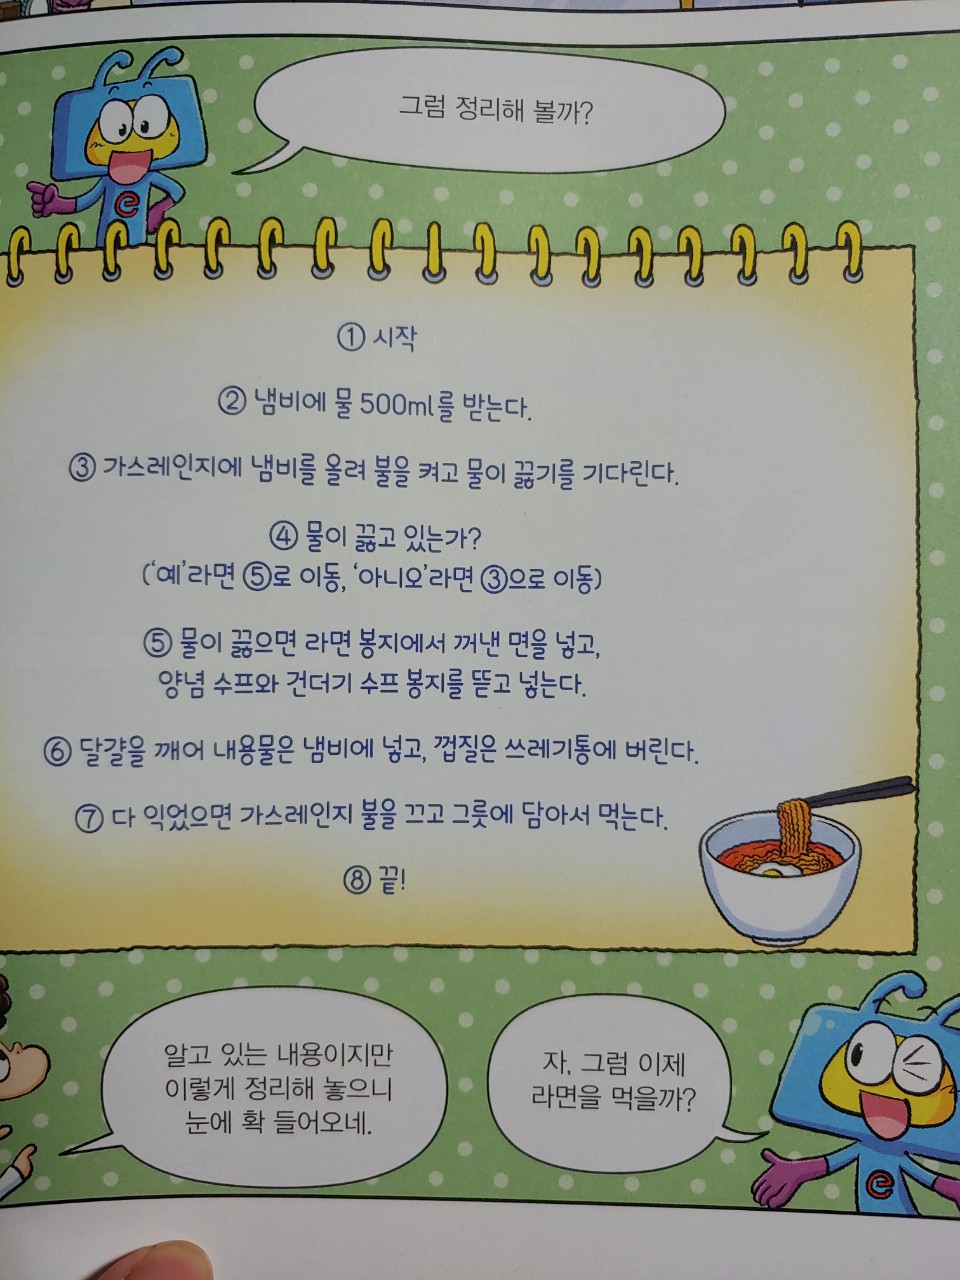 그럼 정리해 볼까?
① 시작
② 냄비에 물 500ml를 받는다.
③ 가스레인지에 냄비를 올려 불을 켜고 물이 끓기를 기다린다.
④ 물이 끓고 있는가?
(‘예’라면 ⑤로 이동, ‘아니오’라면 ③으로 이동)
⑤ 물이 끓으면 라면 봉지에서 꺼낸 면을 넣고,
양념 수프와 건더기 수프 봉지를 뜯고 넣는다.
⑥ 달걀을 깨어 내용물은 냄비에 넣고, 껍질은 쓰레기통에 버린다.
⑦ 다 익었으면 가스레인지 불을 끄고 그릇에 담아서 먹는다.
⑧ 끝!
알고 있는 내용이지만
이렇게 정리해 놓으니
눈에 확 들어오네.
자, 그럼 이제
라면을 먹을까?